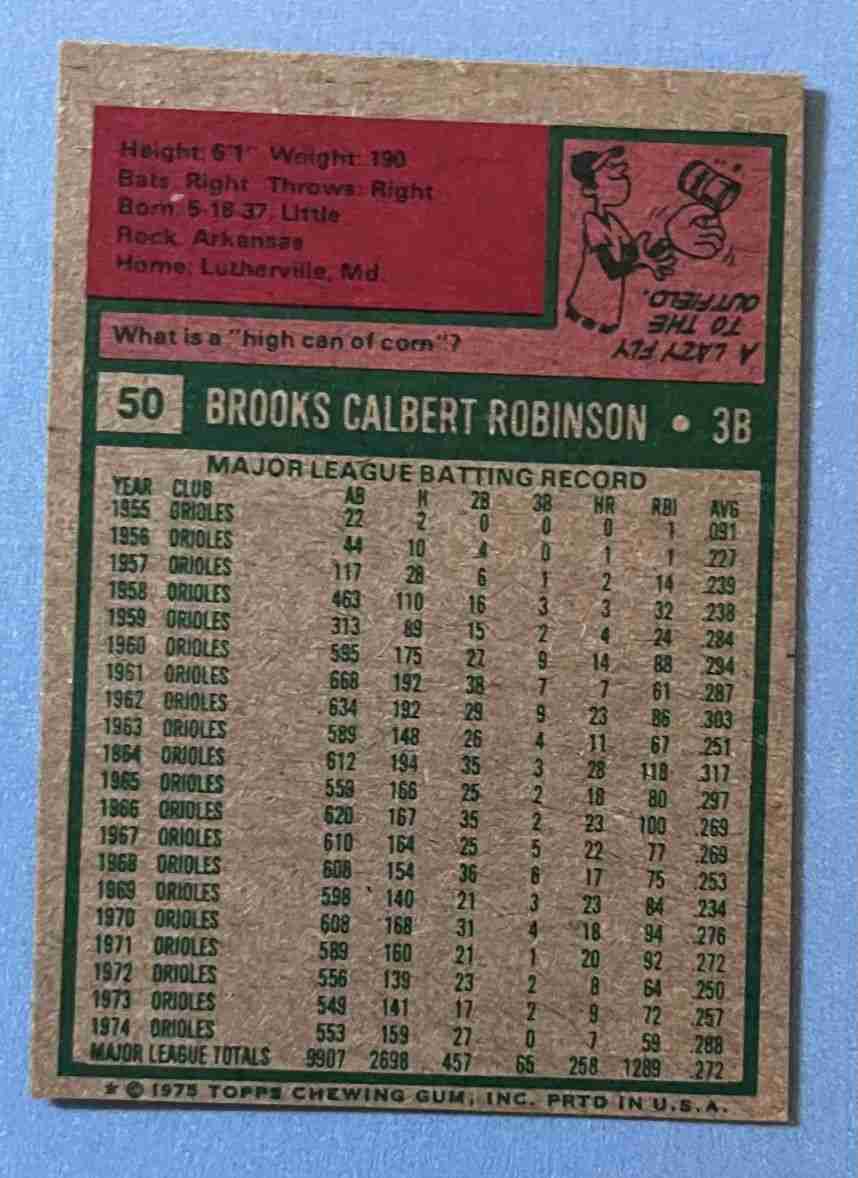 Height: 6'1" Weight: 190
Bats: Right Throws: Right
Born: 5-18-37, Little
Rock, Arkansas
Home: Lutherville, Md.
What is a "high can of corn"?
A LAZY FLY
TO THE
OUTFIELD.
50 BROOKS CALBERT ROBINSON • 3B
MAJOR LEAGUE BATTING RECORD
YEAR CLUB AB H 2B 3B HR RBI AVG
1955 ORIOLES 22 2 0 0 0 1 .091
1956 ORIOLES 44 10 4 0 1 1 .227
1957 ORIOLES 117 28 6 1 2 14 .239
1958 ORIOLES 463 110 16 3 3 32 .238
1959 ORIOLES 313 89 15 2 4 24 .284
1960 ORIOLES 595 175 27 9 14 88 .294
1961 ORIOLES 668 192 38 7 7 61 .287
1962 ORIOLES 634 192 29 9 23 86 .303
1963 ORIOLES 589 148 26 4 11 67 .251
1964 ORIOLES 612 194 35 3 28 118 .317
1965 ORIOLES 559 166 25 2 18 80 .297
1966 ORIOLES 620 167 35 2 23 100 .269
1967 ORIOLES 610 164 25 5 22 77 .269
1968 ORIOLES 608 154 36 6 17 75 .253
1969 ORIOLES 598 140 21 3 23 84 .234
1970 ORIOLES 608 168 31 4 18 94 .276
1971 ORIOLES 589 160 21 1 20 92 .272
1972 ORIOLES 556 139 23 2 8 64 .250
1973 ORIOLES 549 141 17 2 9 72 .257
1974 ORIOLES 553 159 27 0 7 59 .288
MAJOR LEAGUE TOTALS 9907 2698 457 65 258 1289 .272
* © 1975 TOPPS CHEWING GUM, INC. PRTD IN U.S.A.